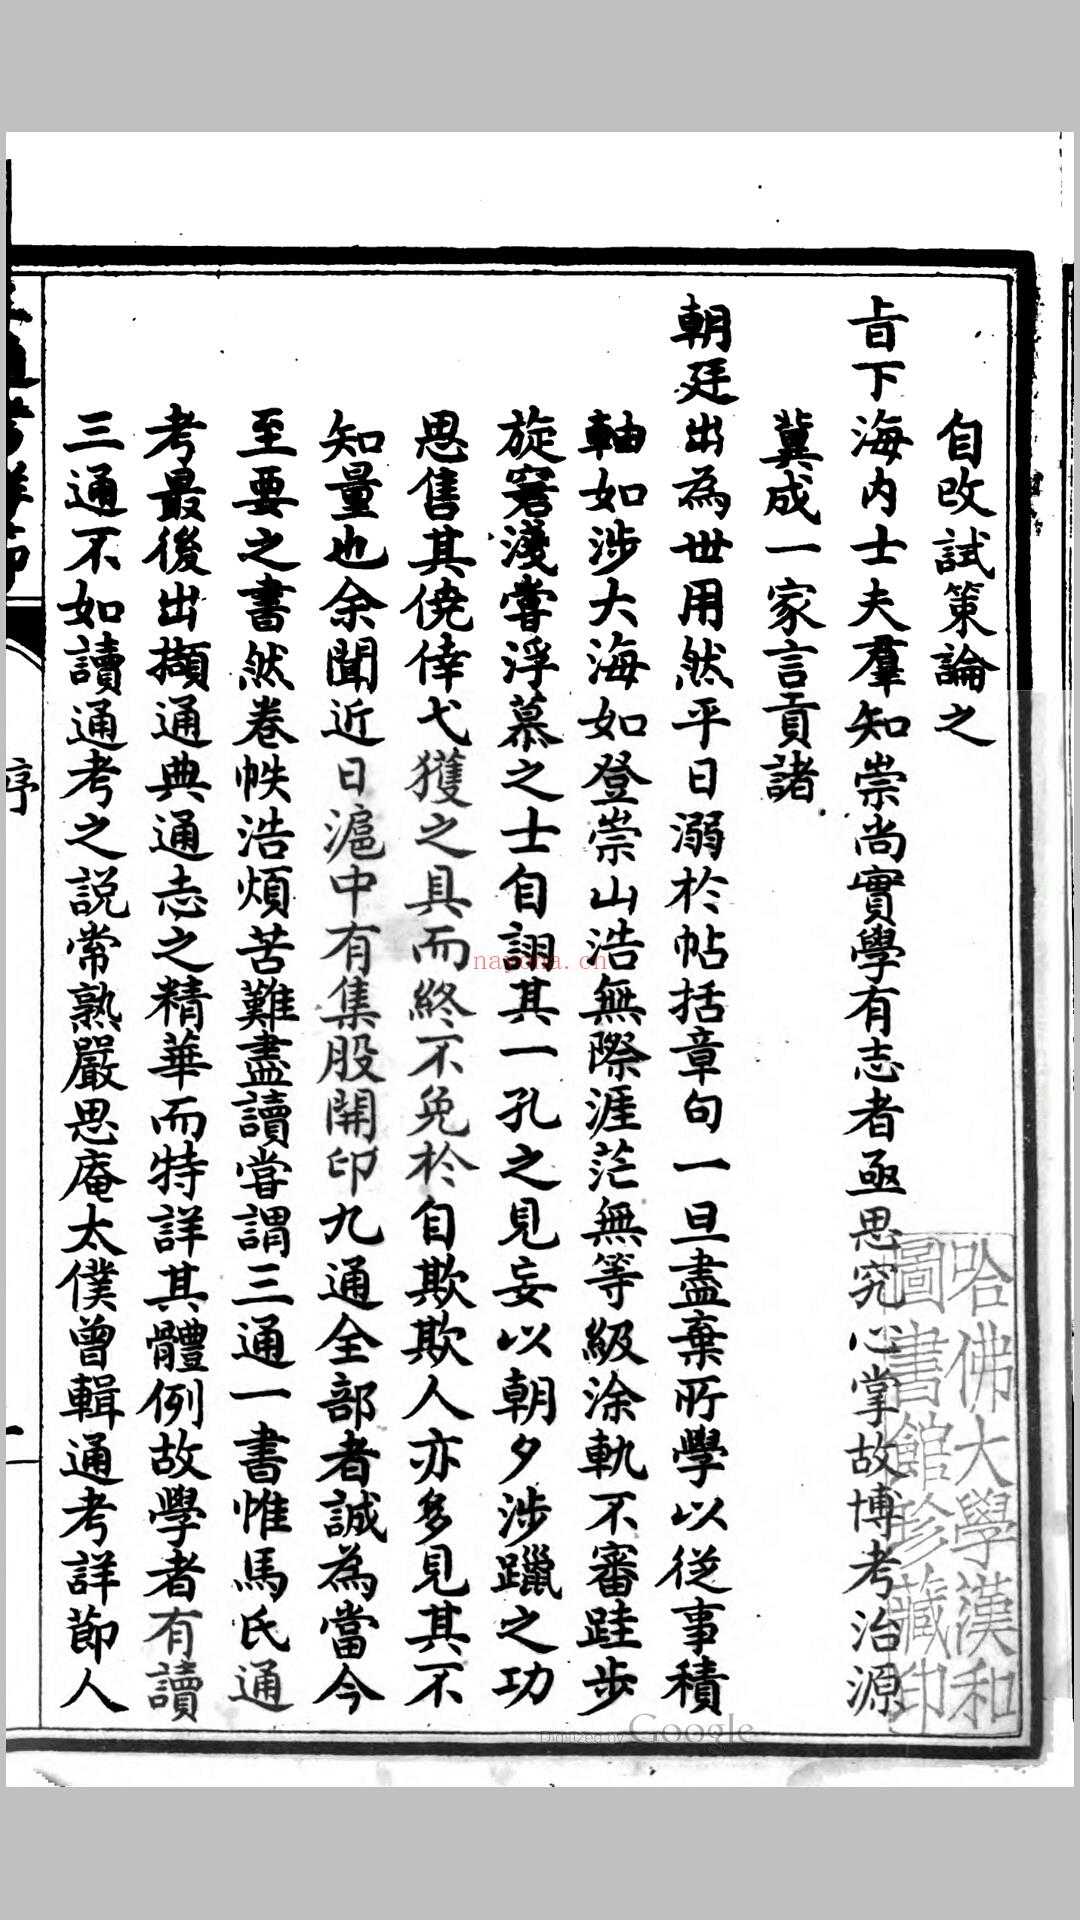 自改試策論之
旨下海內士夫羣知崇尚實學有志者亟思究心掌故博考治源
冀成一家言貢諸
朝廷出為世用然平日溺於帖括章句一旦盡棄所學以從事積
軸如涉大海如登崇山浩無際涯茫無等級涂軌不審跬步
旋窘淺嘗浮慕之士自詡其一孔之見妄以朝夕涉躐之功
思售其僥倖弋獲之具而終不免於自欺欺人亦多見其不
知量也余聞近日滬中有集股開印九通全部者誠為當今
至要之書然卷帙浩煩苦難盡讀嘗謂三通一書惟馬氏通
考最後出擷通典通志之精華而特詳其體例故學者有讀
三通不如讀通考之說常熟嚴思庵太僕曾輯通考詳節人
序
哈佛大學漢和
圖書館珍藏印
nayona.cn
Digitized by Google